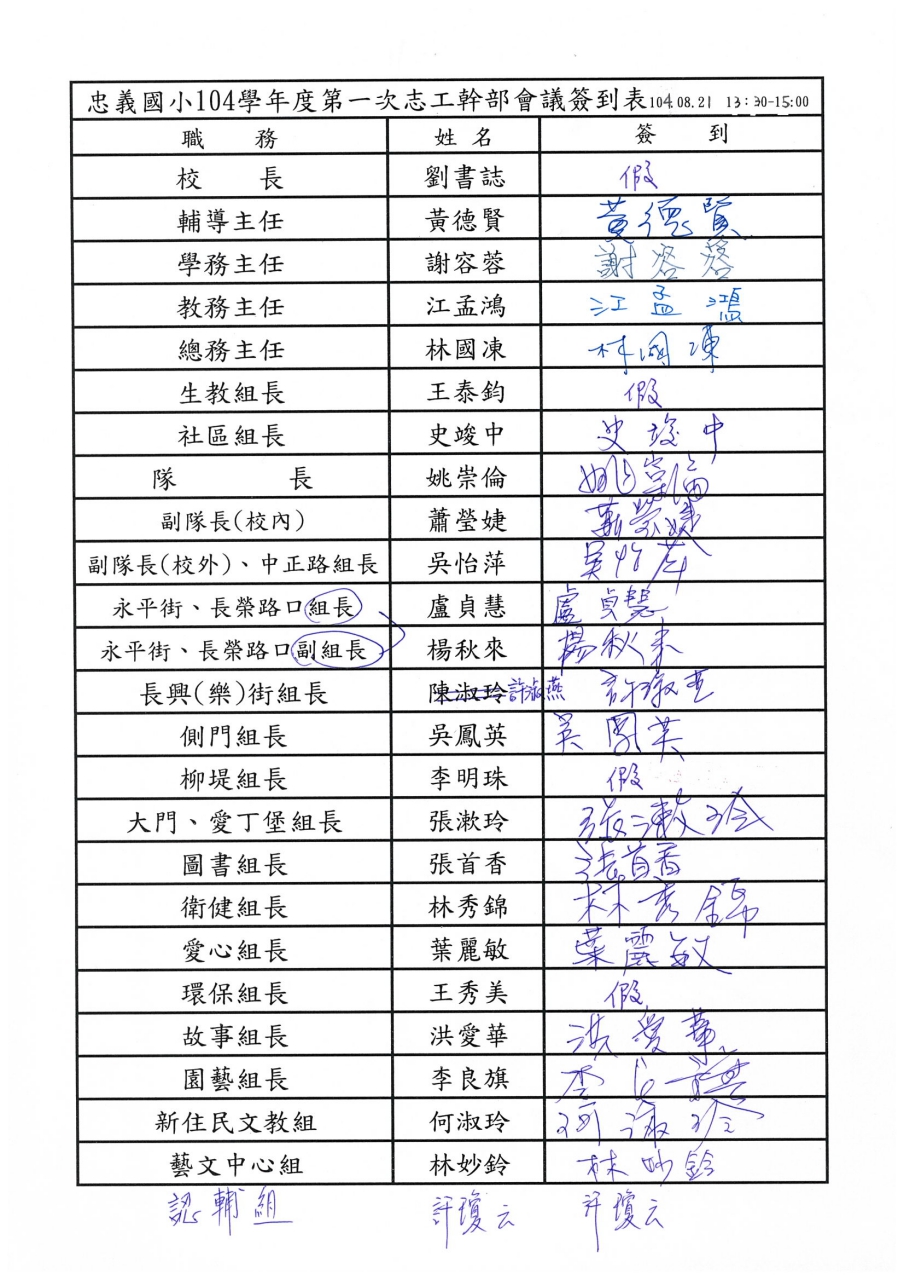 忠義國小104學年度第一次志工幹部會議簽到表104.08.21 13:30-15:00
職 務 姓 名 簽 到
校 長 劉書誌 假
輔導主任 黃德賢 黃德賢
學務主任 謝容蓉 謝容蓉
教務主任 江孟鴻 江孟鴻
總務主任 林國凍 林國凍
生教組長 王泰鈞 假
社區組長 史竣中 史竣中
隊 長 姚崇倫 姚崇倫
副隊長(校內) 蕭瑩婕 蕭瑩婕
副隊長(校外)、中正路組長 吳怡萍 吳怡萍
永平街、長榮路口組長 盧貞慧 盧貞慧
永平街、長榮路口副組長 楊秋來 楊秋來
長興(樂)街組長 陳淑玲 許淑燕 許淑燕
側門組長 吳鳳英 吳鳳英
柳堤組長 李明珠 假
大門、愛丁堡組長 張漱玲 張漱玲
圖書組長 張首香 張首香
衛健組長 林秀錦 林秀錦
愛心組長 葉麗敏 葉麗敏
環保組長 王秀美 假
故事組長 洪愛華 洪愛華
園藝組長 李良旗 李良旗
新住民文教組 何淑玲 何淑玲
藝文中心組 林妙鈴 林妙鈴
認輔組 許瓊云 許瓊云